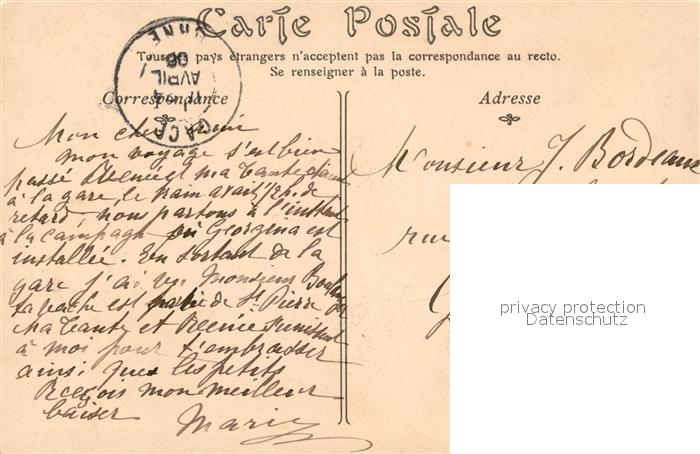 Carte Postale
Tous les pays étrangers n'acceptent pas la correspondance au recto.
Se renseigner à la poste.
Correspondance
Adresse
GACE
ORNE
AVRIL
08
Mon cher ami
mon voyage s'est bien
passé ma tante était
à la gare, le train avait 1/2 h. de
retard, nous partons à l'instant
à la campagne où Georgina est
installée. En sortant de la
gare j'ai vu Monsieur
la vache est de St Pierre
Ma tante et
à moi pour t'embrasser
ainsi que les petits
Reçois mon meilleur
baiser
Marie
Monsieur J. Bordeaux
rue
privacy protection
Datenschutz